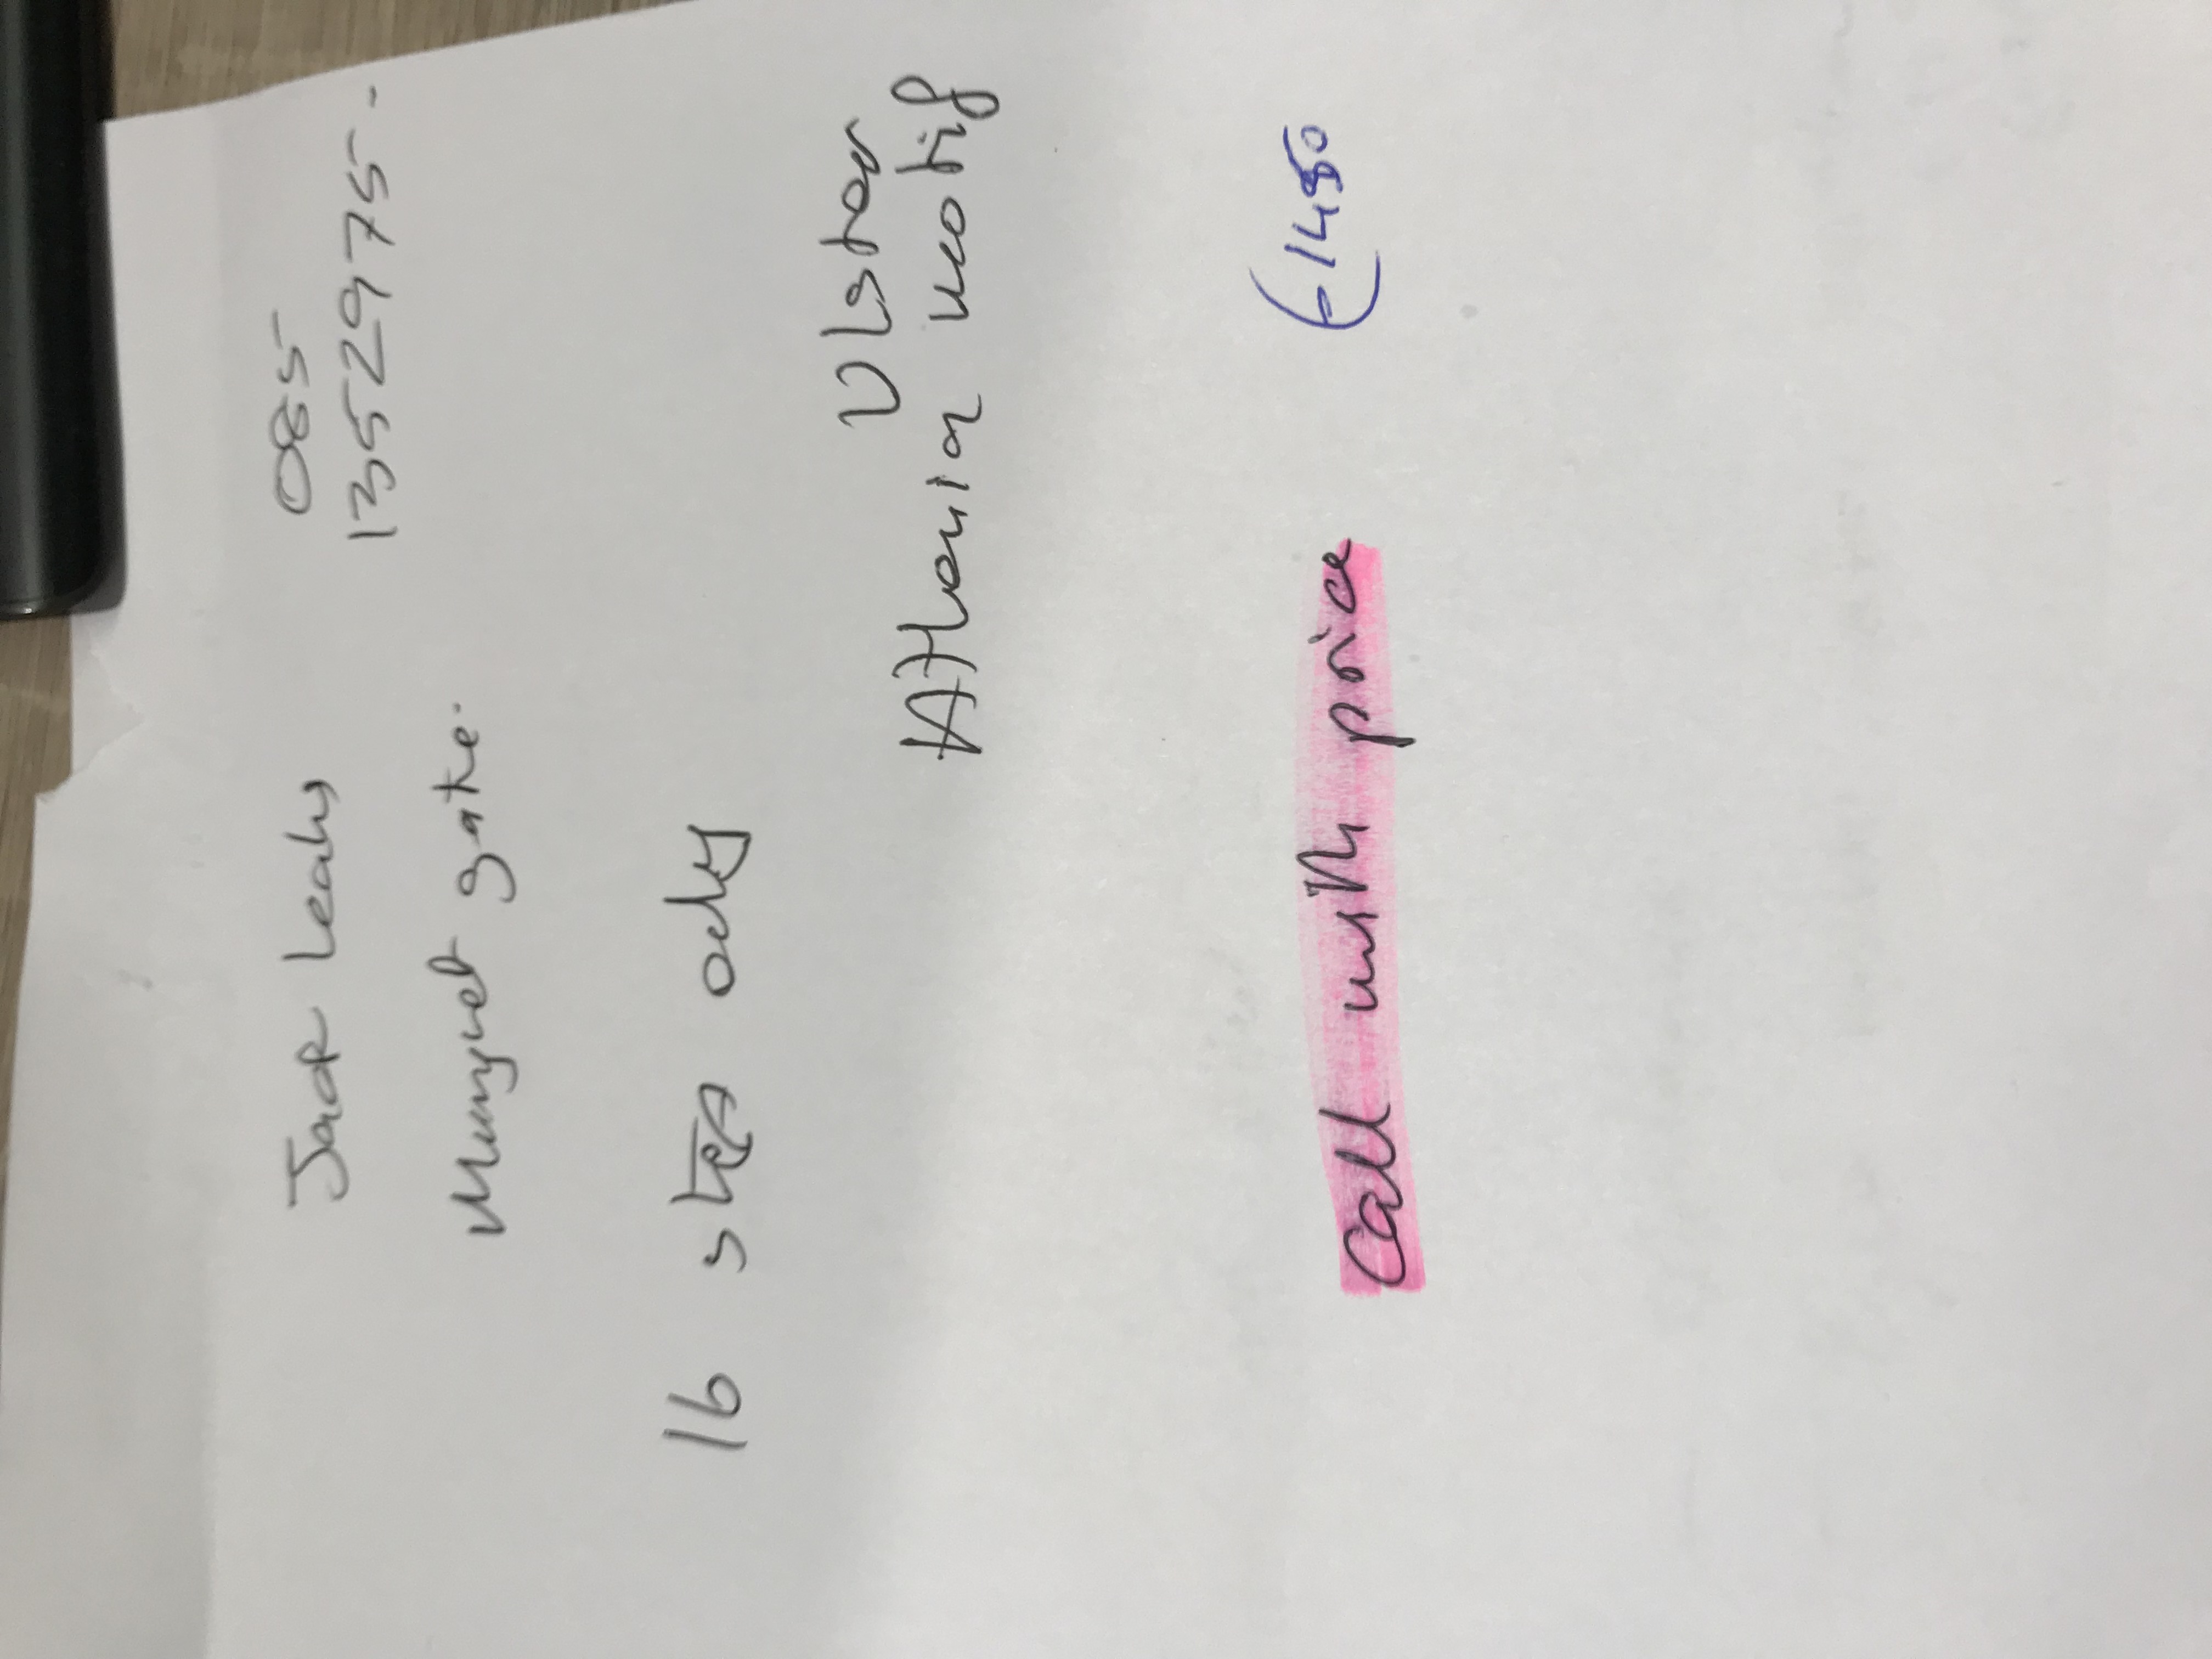 085
Jack Leahy 1352975
Mungret gate.
16 steps only
Ulster
Athenia motif
Call with price €1450